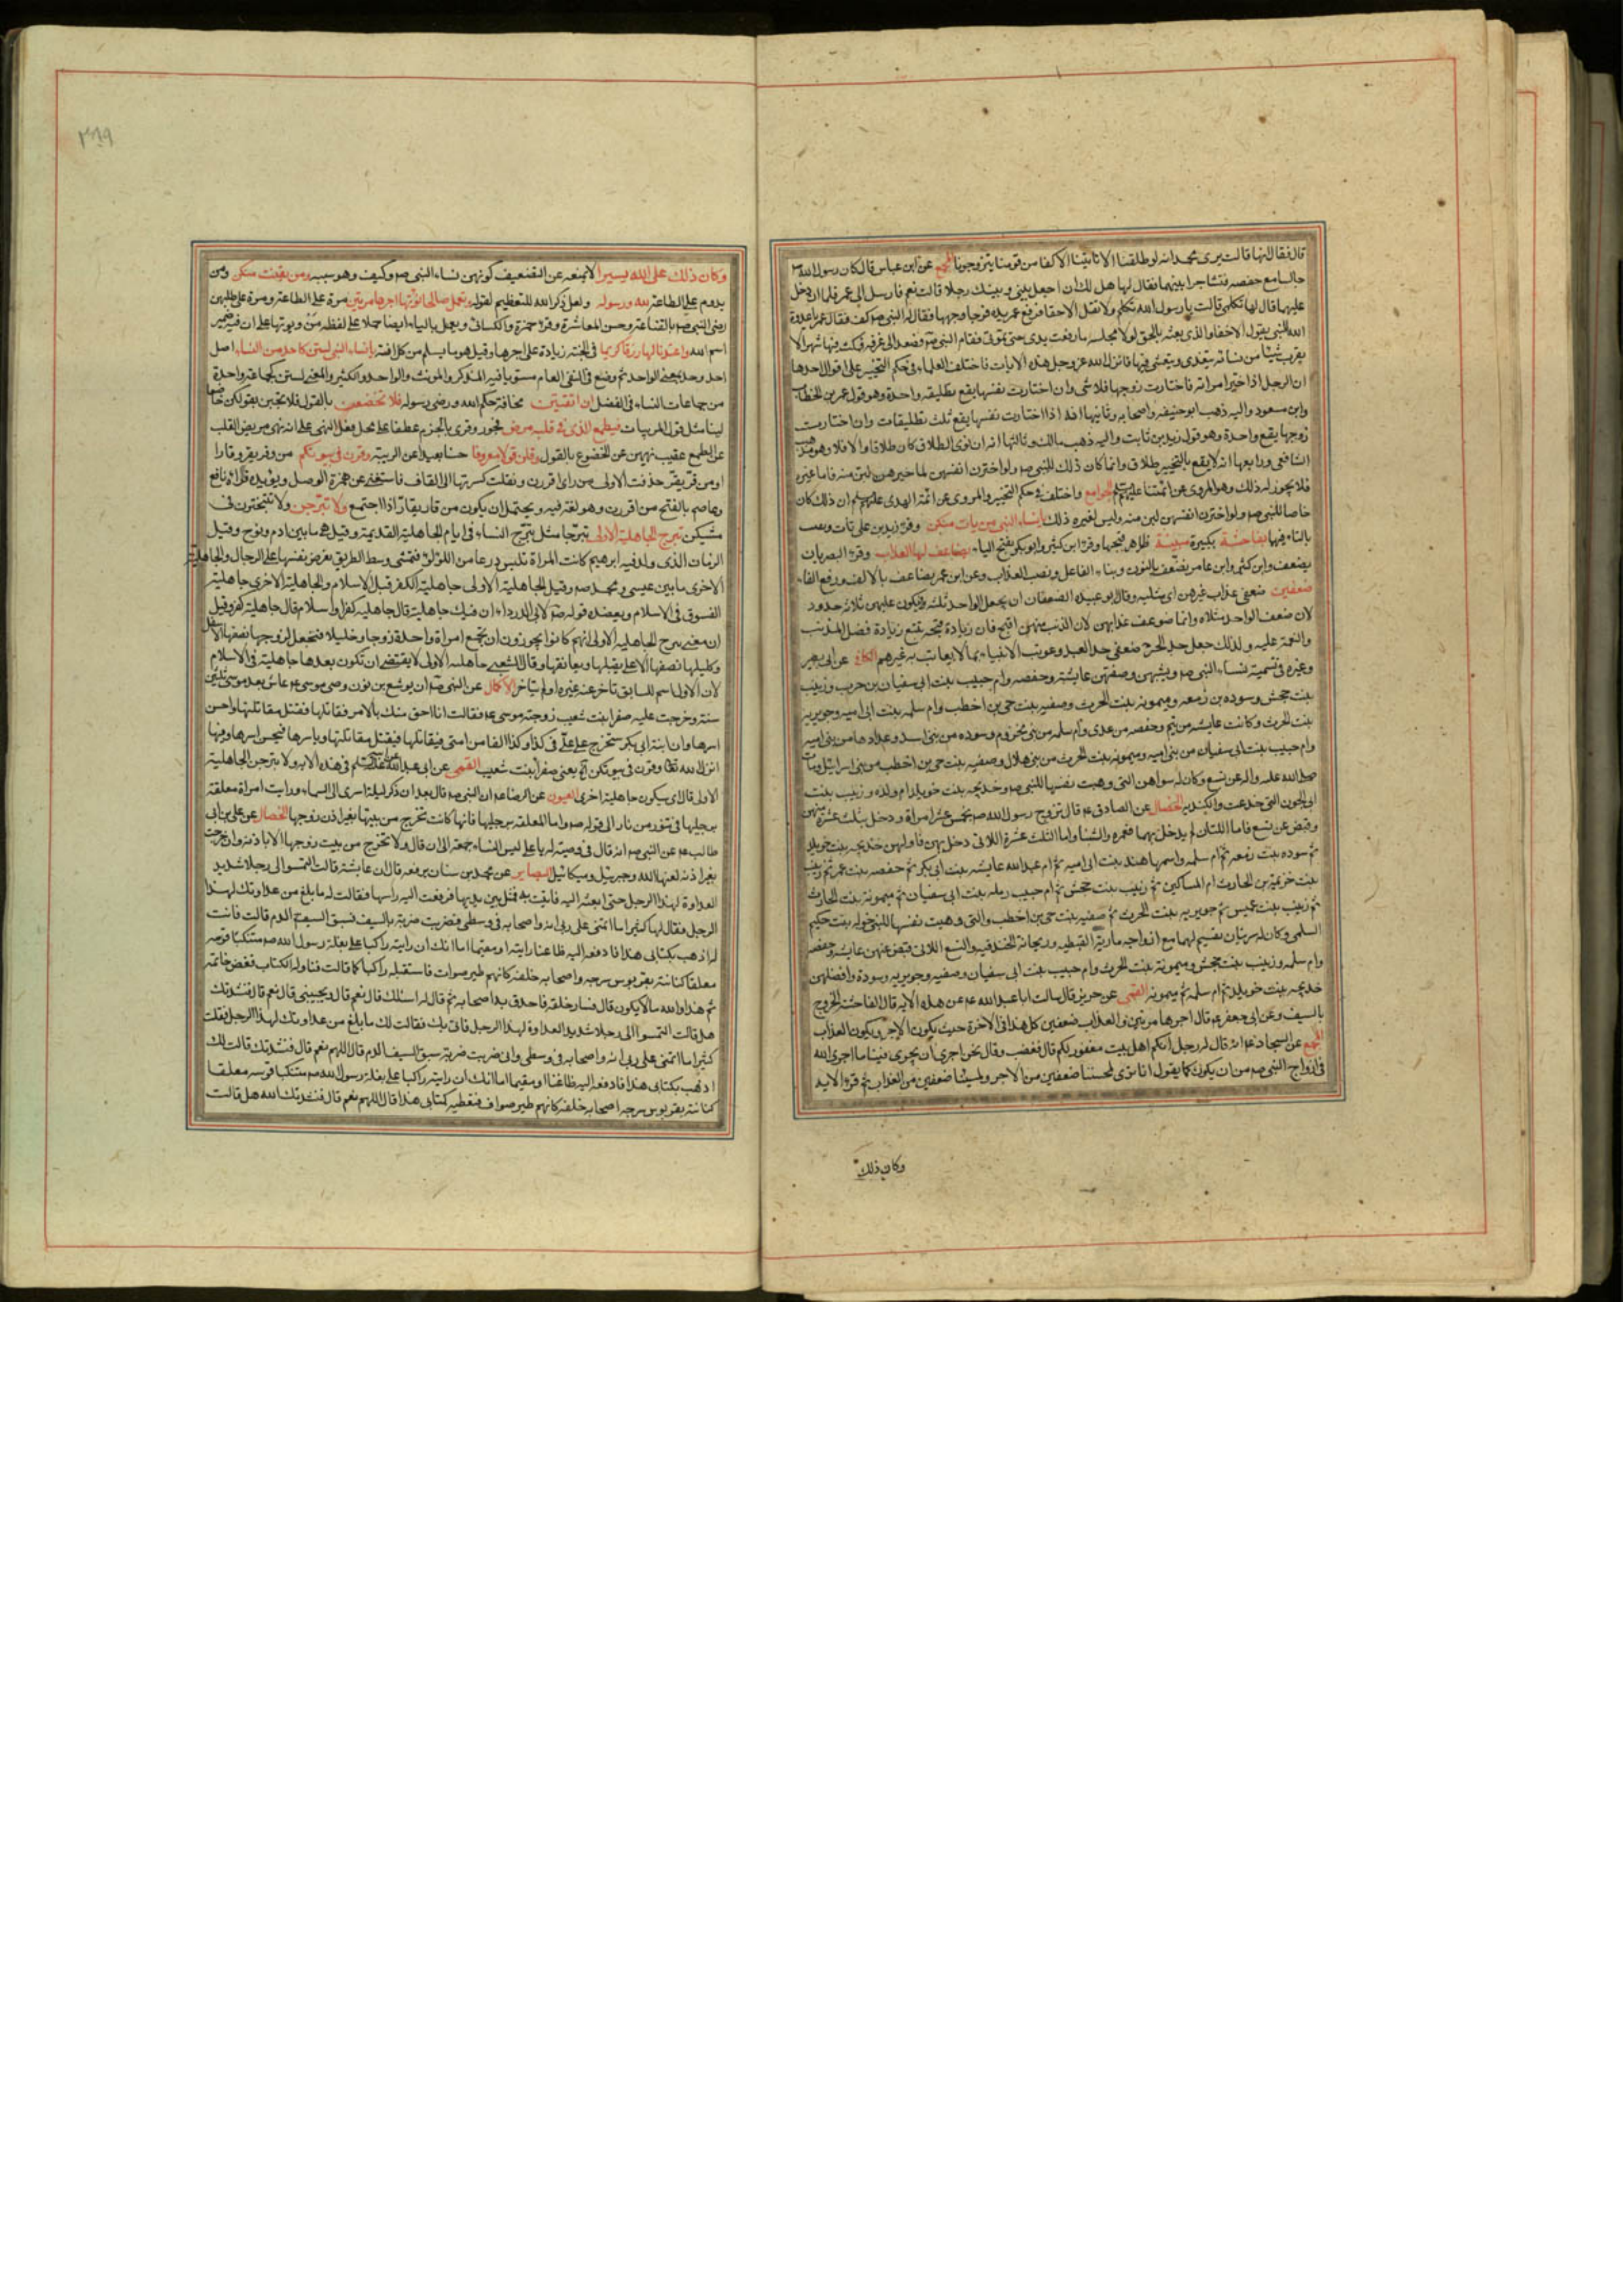 قال فقال انها قالت يرى محمد انه لو طلقنا الا تاتينا الاكفا من قومنا يتزوجونا المجمع عن ابن عباس قال كان رسول الله ص
جالسا مع حفصه فتشاجرا بينهما فقال لها هل لك ان اجعل بينى وبينك رجلا قالت نعم فارسل الى عمر فلما ان دخل
عليهما قال لها تكلمى قالت يا رسول الله تكلم ولا تقل الا حقا فرفع عمر يده فوجا وجهها فقال له النبى ص كف فقال عمر يا عدوة
الله النبى يقول الا حقا والذى بعثه بالحق لولا مجلسه ما رفعت يدى حتى تموتى فقام النبى ص فصعد الى غرفه فمكث فيها شهرا لا
يقرب شيئا من نسائه يتغدى ويتعشى فيها فانزل الله عز وجل هذه الايات فاختلف العلماء فى حكم التخيير على اقوال احدها
ان الرجل اذا خير امراته فاختارت زوجها فلا شى وان اختارت نفسها يقع تطليقه واحدة وهو قول عمر بن الخطاب
وابن مسعود واليه ذهب ابو حنيفه واصحابه وثانيها انه اذا اختارت نفسها يقع ثلث تطليقات وان اختارت
زوجها يقع واحدة وهو قول زيد بن ثابت واليه ذهب مالك وثالثها انه ان نوى الطلاق كان طلاقا والا فلا وهو مذهب
الشافعى ورابعها انه لا يقع بالتخيير طلاق وانما كان ذلك للنبى ص ولو اخترن انفسهن لما خيرهن لبن منه فاما غيره
فلا يجوز له ذلك وهو المروى عن ائمتنا عليهم السلم الجوامع واختلف فى حكم التخيير والمروى عن ائمة الهدى عليهم السلم ان ذلك كان
خاصا للنبى ص ولو اخترن انفسهن لبن منه وليس لغيره ذلك يا نساء النبى من يات منكن وقرء زيد بن على تات ويعقوب
بالتاء فيها بفاحشة بكبيرة مبينة ظاهر قبحها وقرء ابن كثير وابو بكر بفتح الياء يضاعف لها العذاب وقرء البصريان
يضعف وابن كثير وابن عامر نضعف بالنون وبناء الفاعل ونصب العذاب وعن ابن عمر يضاعف بالالف ورفع الفاء
ضعفين ضعفى عذاب غيرهن اى مثليه وقال ابو عبيده الضعفان ان يجعل الواحد ثلثه فيكون عليهن ثلاثة حدود
لان ضعف الواحد مثلاه وانما ضوعف عذابهن لان الذنب منهن اقبح فان زيادة قبحه يتبع زيادة فضل المذنب
والنعمة عليه ولذلك جعل حد الحر ضعفى حد العبد وعوتب الانبياء بما لا يعاتب به غيرهم الكافى عن ابى بصير
وغيره فى تسمية نساء النبى ص ونسبهن وصفتهن عايشه وحفصه وام حبيب بنت ابى سفيان بن حرب وزينب
بنت جحش وسوده بن زمعه وميمونه بنت الحرث وصفيه بنت حى بن اخطب وام سلمه بنت ابى اميه وجويريه
بنت الحرث وكانت عايشه من تيم وحفصه من عدى وام سلمه من بنى مخزوم وسوده من بنى اسد وعدادها من بنى اميه
وام حبيب بنت ابى سفيان من بنى اميه وميمونه بنت الحرث من بنى هلال وصفيه بنت حى بن اخطب من بنى اسرائيل ومات
صلى الله عليه واله عن تسع وكان له سواهن التى وهبت نفسها للنبى ص وخديجه بنت خويلد ام ولده وزينب بنت
ابى الجون التى خدعت والكنديه الخصال عن الصادق ع قال تزوج رسول الله ص بخمس عشرة امراة ودخل بثلث عشرة منهن
وقبض عن تسع فاما اللتان لم يدخل بهما فعمره والشنا واما الثلث عشرة اللاتى دخل بهن فاولهن خديجه بنت خويلد
ثم سوده بنت زمعه ثم ام سلمه واسمها هند بنت ابى اميه ثم ام عبد الله عايشه بنت ابى بكر ثم حفصه بنت عمر ثم زينب
بنت خزيمه بن الحارث ام المساكين ثم زينب بنت جحش ثم ام حبيب رمله بنت ابى سفيان ثم ميمونة بنت الحارث
ثم زينب بنت عميس ثم جويريه بنت الحرث ثم صفيه بنت حى بن اخطب والتى وهبت نفسها للنبى خوله بنت حكيم
السلمى وكان له سريتان يقسم لهما مع ازواجه مارية القبطيه وريحانة الخندفيه والتسع اللاتى قبض عنهن عايشه وحفصه
وام سلمه وزينب بنت جحش وميمونة بنت الحرث وام حبيب بنت ابى سفيان وصفيه وجويريه وسودة وافضلهن
خديجه بنت خويلد ثم ام سلمه ثم ميمونه القمى عن حريز قال سالت ابا عبد الله ع عن هذه الايه قال الفاحشة الخروج
بالسيف وعن ابى جعفر ع قال اجرها مرتين والعذاب ضعفين كل هذا فى الاخرة حيث يكون الاجر ويكون العذاب
المجمع عن السجاد ع انه قال له رجل انكم اهل بيت مغفور لكم قال فغضب وقال نحن احرى ان يجرى فينا ما اجرى الله
فى ازواج النبى ص من ان يكون كما يقول انا نرى لمحسننا ضعفين من الاجر ولمسيئنا ضعفين من العذاب ثم قرء الايه
وكان ذلك
٣٩٩
وكان ذلك على الله يسيرا لا يمنعه عن التضعيف كونهن نساء النبى ص وكيف وهو سببه ومن يقنت منكن ومن
يدوم على الطاعة لله ورسوله ولعل ذكر الله للتعظيم لقوله وتعمل صالحا نؤتها اجرها مرتين مرة على الطاعة ومرة على طلبهن
رضى النبى ص بالقناعة وحسن المعاشرة وقرء حمزة والكسائى ويعمل بالياء ايضا حملا على لفظه من ويوتها على ان فيه ضمير
اسم الله واعتدنا لها رزقا كريما فى الجنة زيادة على اجرها وقيل هو ما يسلم من كل افة يا نساء النبى لستن كاحد من النساء اصل
احد وحد بمعنى الواحد ثم وضع فى النفى العام مستويا فيه المذكر والمونث والواحد والكثير والمعنى لستن كجماعة واحدة
من جماعات النساء فى الفضل ان اتقيتن مخافة حكم الله ورضى رسوله فلا تخضعن بالقول فلا تجبن بقولكن خاضعا
لينا مثل قول المريبات فيطمع الذى فى قلبه مرض فجور وقرى بالجزم عطفا على محل فعل النهى على انه نهى مريض القلب
عن الطمع عقيب نهيهن عن الخضوع بالقول وقلن قولا معروفا حسنا بعيدا عن الريبة وقرن فى بيوتكن من وقر يقر وقارا
او من قر يقر حذفت الاولى من رائى اقررن ونقلت كسرتها الى القاف فاستغنى عن همزة الوصل ويؤيده قراءة نافع
وعاصم بالفتح من اقررن وهو لغة فيه ويحتمل ان يكون من قار يقار اذا اجتمع ولا تبرجن ولا تتبخترن فى
مشيكن تبرج الجاهلية الاولى تبرجا مثل تبرج النساء فى ايام الجاهلية القديمة وقيل هى ما بين ادم ونوح وقيل
الزمان الذى ولد فيه ابرهيم كانت المراة تلبس درعا من اللؤلؤ فتمشى وسط الطريق تعرض نفسها على الرجال والجاهلية
الاخرى ما بين عيسى ومحمد ص وقيل الجاهلية الاولى جاهلية الكفر قبل الاسلام والجاهلية الاخرى جاهلية
الفسوق فى الاسلام ويعضده قوله ص لابى الدرداء ان فيك جاهلية قال جاهليه كفر او اسلام قال جاهلية كفر وقيل
ان معنى تبرج الجاهليه الاولى انهم كانوا يجوزون ان تجمع امراة واحدة زوجا وخليلا فتجعل لزوجها نصفها الاسفل
وخليلها نصفها الاعلى يقبلها ويعانقها وقال الشعبى جاهليه الاولى لا يقتضى ان تكون بعدها جاهلية فى الاسلام
لان الاول اسم للسابق تاخر عنه غيره او لم يتاخر الاكمال عن النبى ص ان يوشع بن نون وصى موسى ع عاش بعد موسى ثلثين
سنة وخرجت عليه صفرا بنت شعيب زوجة موسى ع فقالت انا احق منك بالامر فقاتلها فقتل مقاتلتها واحسن
اسرها وان ابنة ابى بكر ستخرج على على فى كذا وكذا الفا من امتى فيقاتلها فيقتل مقاتلتها وياسرها فيحسن اسرها وفيها
انزل الله تعالى وقرن فى بيوتكن اه يعنى صفرا بنت شعيب القمى عن ابى عبد الله عن ابيه عليهما السلم فى هذه الايه ولا تبرجن الجاهلية
الاولى قال اى سيكون جاهلية اخرى العيون عن الرضا ع ان النبى ص قال بعد ان ذكر ليلة اسرى الى السماء ورايت امراة معلقة
برجليها فى تنور من نار الى قوله ص واما المعلقه برجليها فانها كانت تخرج من بيتها بغير اذن زوجها الخصال عن على بن ابى
طالب ع عن النبى ص انه قال فى وصية له يا على ليس النساء جمعة الى ان قال ولا تخرج من بيت زوجها الا باذنه وان خرجت
بغير اذنه لعنها الله وجبرئيل وميكائيل البصاير عن محمد بن سنان يرفعه قال ان عايشة قالت التمسوا الى رجلا شديد
العداوة لهذا الرجل حتى ابعثه اليه فاتيت به فمثل بين يديها فرفعت اليه راسها فقالت له ما بلغ من عداوتك لهذا
الرجل فقال لها كثيرا ما اتمنى على ربى انه واصحابه فى وسطى فضربت ضربة بالسيف فسبق السيف الدم قالت فانت
له اذهب بكتابى هذا فادفعه اليه ظاعنا رايته او مقيما اما انك ان رايته راكبا على بغلة رسول الله ص متنكبا قوسه
معلقا كنانته بقربوس سرجه واصحابه خلفه كانهم طير صواف فاستقبله راكبا كما قالت فناوله الكتاب ففض خاتمه
كثيرا ما اتمنى على ربى انه واصحابه فى وسطى وانى ضربت ضربة سبق السيف الدم قال اللهم نعم قال فنشدتك قالت لك
اذهب بكتابى هذا فادفعه اليه ظاعنا او مقيما اما انك ان رايته راكبا على بغلة رسول الله ص متنكبا قوسه معلقا
كنانته بقربوس سرجه اصحابه خلفه كانهم طير صواف فتعطيه كتابى هذا قال اللهم نعم قال فنشدتك الله هل قالت